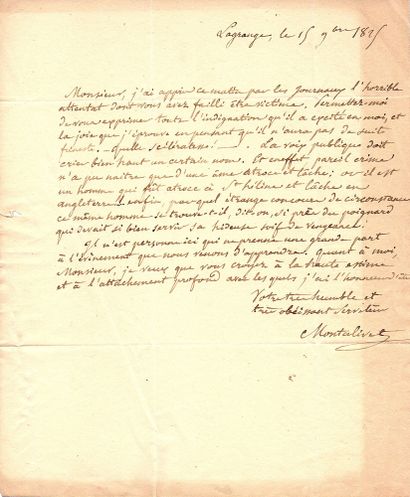 Lagrange, le 15 9bre 1825
Monsieur, j'ai appris ce matin par les journaux l'horrible
attentat dont vous avez failli être victime. Permettez-moi
de vous exprimer toute l'indignation qu'il a excité en moi, et
la joie que j'éprouve en pensant qu'il n'aura pas de suite
funeste. _ quelle scélératesse! _ La voix publique doit
crier bien haut un certain nom. Et en effet pareil crime
n'a pu naitre que d'une âme atroce et lâche: or il est
un homme qui fût atroce à Ste hélène et lâche en
angleterre. enfin, par quel étrange concours de circonstance
ce même homme se trouve-t-il, dit-on, si près du poignard
qui devait si bien servir sa hideuse soif de vengeance!
Il n'est personne ici qui ne prenne une grande part
à l'événement que nous venons d'apprendre. Quant à moi,
Monsieur, je veux que vous croyez à la haute estime
et à l'attachement profond avec lesquels j'ai l'honneur d'être
Votre très humble et
très obéissant Serviteur
Montalivet